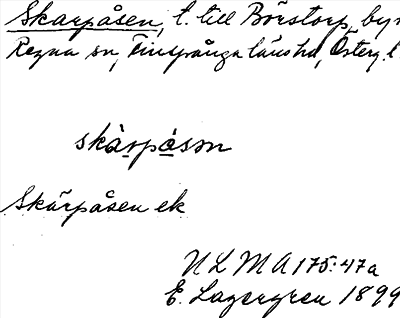 Skarpåsen, t. till Börstorp, by
Regna sn, Finspånga länshd, Österg. l.
skàrpåsən
Skårpåsen ek
ULMA 175:47a
E. Lagergren 1899